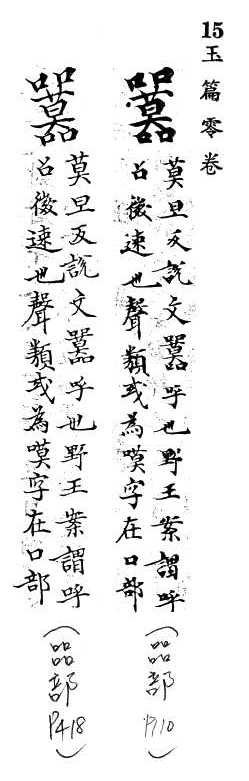 15
玉篇零卷
莫旦反說文囂呼也野王案謂呼
召後速也聲類或為嗼字在口部
(㗊部
P.10)
莫旦反說文囂呼也野王案謂呼
召後速也聲類或為嗼字在口部
(㗊部
P418)